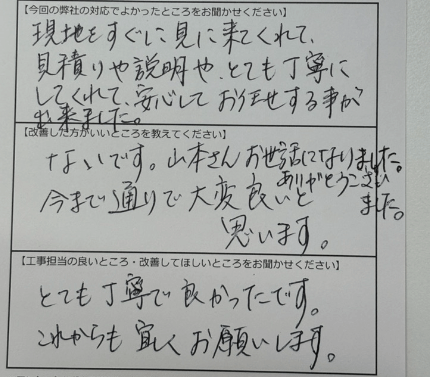 【今回の弊社の対応でよかったところをお聞かせください】
現地をすぐに見に来てくれて、
見積りや説明や、とても丁寧に
してくれて、安心してお任せする事が
出来ました。
【改善した方がいいところを教えてください】
ないです。山本さんお世話になりました。
ありがとうござい
ました。
今まで通りで大変良いと
思います。
【工事担当の良いところ・改善してほしいところをお聞かせください】
とても丁寧で良かったです。
これからも宜しくお願いします。